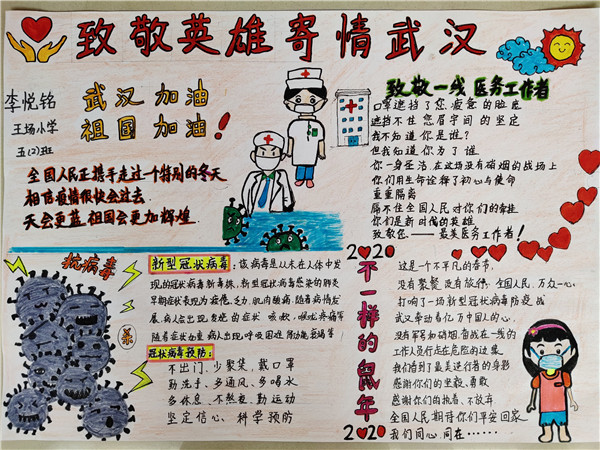 致敬英雄寄情武汉
李悦铭
王场小学
五(2)班
武汉加油
祖国加油!
全国人民正携手走过一个特别的冬天
相信疫情很快会过去.
天会更蓝,祖国会更加辉煌.
致敬一线医务工作者
口罩遮挡了您疲惫的脸庞
遮挡不住您眉宇间的坚定
我不知道你是谁?
但我知道你为了谁
你一身坚洁,在这场没有硝烟的战场上
你们用生命诠释了初心与使命
重重隔离
隔不住全国人民对你们的牵挂
你们是新时代的英雄
致敬您——最美医务工作者!
抗病毒
杀
新型冠状病毒:该病毒是从未在人体中发
现的冠状病毒新毒株,新型冠状病毒感染的肺炎
早期症状表现为疲倦,乏力,肌肉酸痛,随着病情发
展,病人在出现发烧的症状
随着症状加重,病人出现呼吸困难
冠状病毒预防:
不出门、少聚集、戴口罩
勤洗手、多通风、多喝水
多休息、不熬夜、勤运动
坚定信心、科学预防
2020
不一样的鼠年
2020
这是一个不平凡的春节,
没有聚餐,没有旅游,全国人民,万众一心,
打响了一场新型冠状病毒防疫战
武汉牵动着亿万中国人的心,
没有军号和硝烟,奋战在一线的
工作人员行走在危险的边缘
我们看到了最美逆行者的身影
感谢你们的坚毅,勇敢
感谢你们的执着、不放弃
全国人民期待你们平安回家
我们同心,同在……